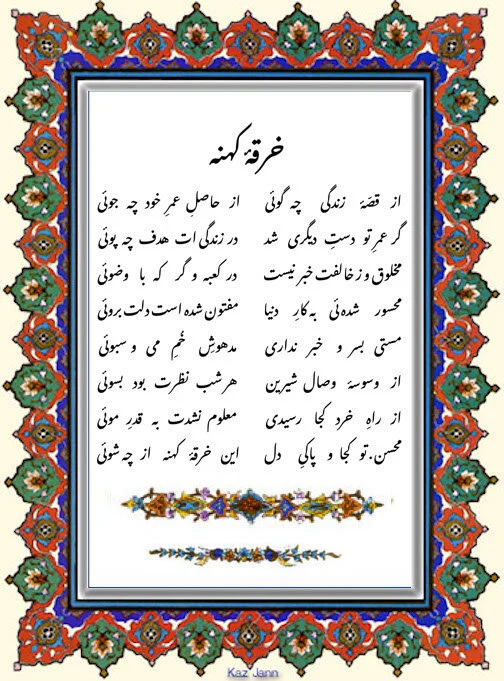 خرقهٔ کهنه
از قصّهٔ زندگی چه گوئی از حاصلِ عمرِ خود چه جوئی
گر عمرِ تو دستِ دیگری شد در زندگی ات هدف چه پوئی
مخلوق و ز خالقت خبر نیست در کعبه و گر که با وضوئی
محسور شده‌ئی به کارِ دنیا مفتون شده است دلت بروئی
مستی بسر و خبر نداری مدهوشِ خُمِ می و سبوئی
از وسوسهٔ وصال شیرین هر شب نظرت بود بسوئی
از راهِ خرد کجا رسیدی معلوم نشدت به قدرِ موئی
محسن. تو کجا و پاکیِ دل این خرقهٔ کهنه از چه شوئی
Kaz Jann